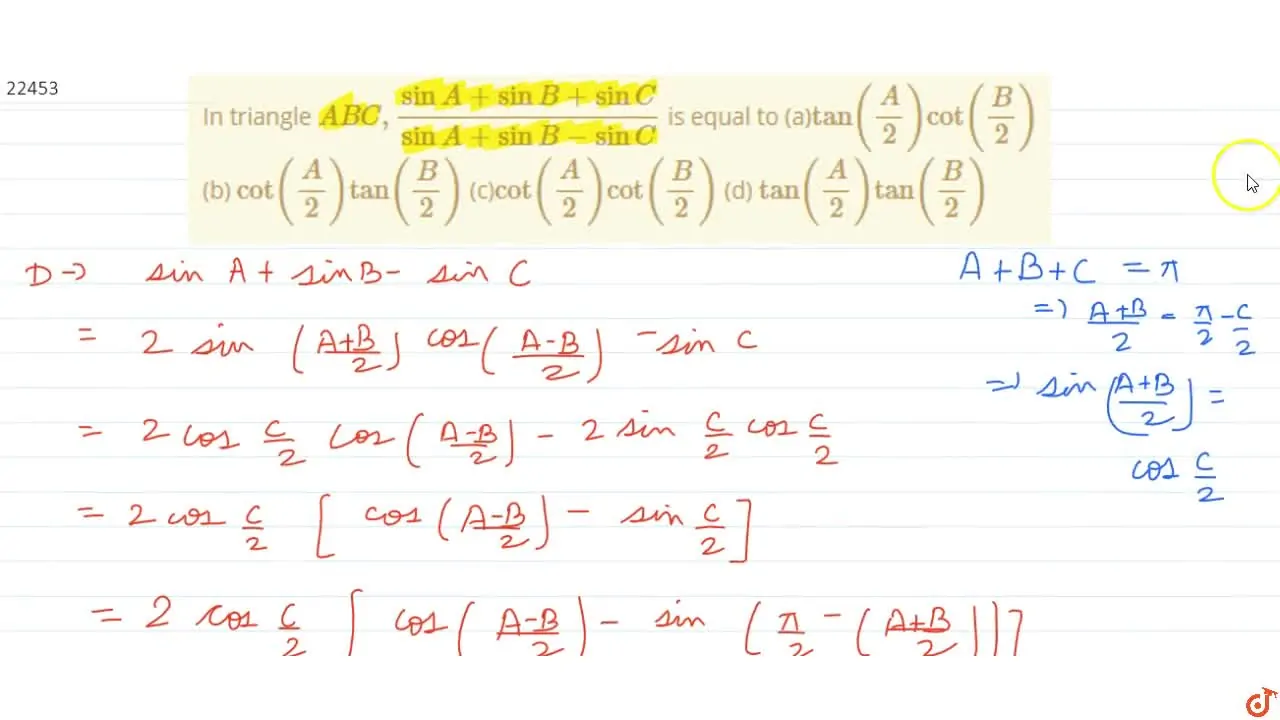 22453
In triangle ABC, (sin A + sin B + sin C)/(sin A + sin B − sin C) is equal to (a)tan(A/2)cot(B/2)
(b) cot(A/2)tan(B/2) (c)cot(A/2)cot(B/2) (d) tan(A/2)tan(B/2)
D → sin A + sin B − sin C
= 2 sin (A+B/2) cos (A−B/2) − sin C
= 2 cos C/2 cos (A−B/2) − 2 sin C/2 cos C/2
= 2 cos C/2 [ cos (A−B/2) − sin C/2 ]
= 2 cos C/2 [ cos (A−B/2) − sin (π/2 − (A+B/2))]
A + B + C = π
=> A+B/2 = π/2 − C/2
=> sin (A+B/2) =
cos C/2